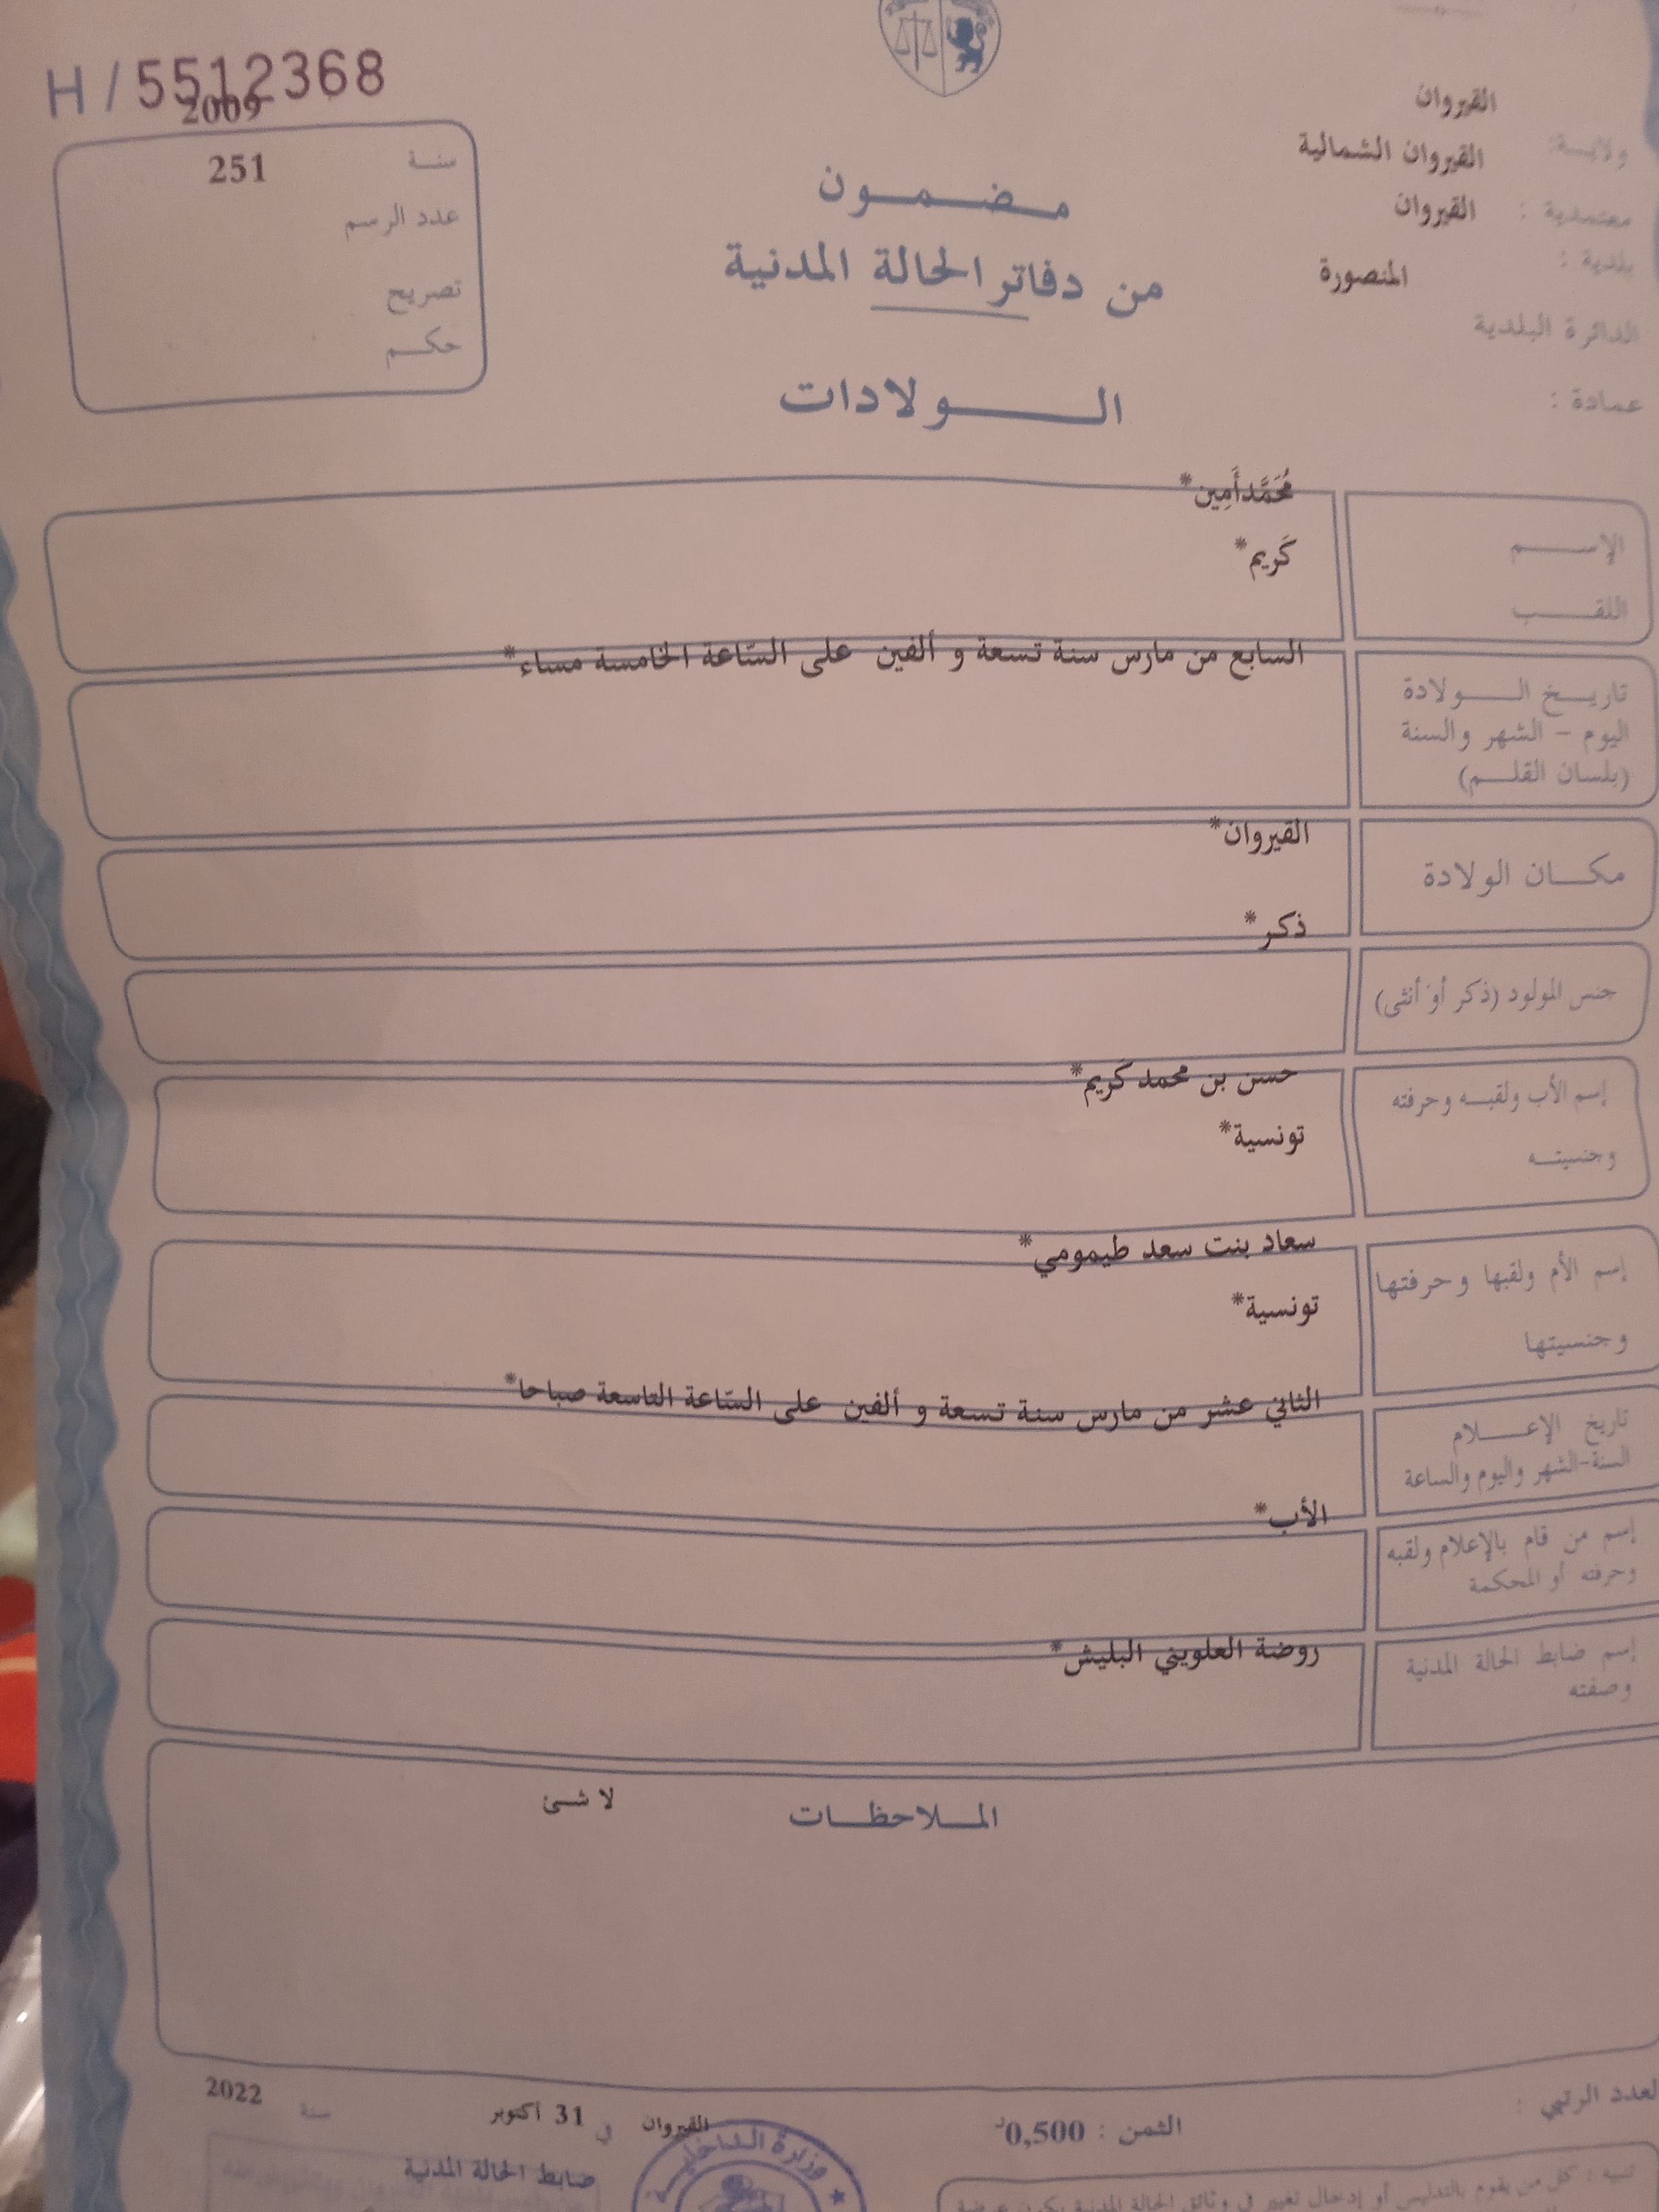 H / 5512368
2009
سنة
251
عدد الرسم
تصريح
حكم
مضمون
من دفاتر الحالة المدنية
الولادات
القيروان
ولاية:
القيروان الشمالية
معتمدية :
القيروان
بلدية :
المنصورة
الدائرة البلدية
عمادة :
مُحَمَّدأَمِين*
الإسم
كَريم*
اللقب
السابع من مارس سنة تسعة و ألفين على السّاعة الخامسة مساء*
تاريخ الولادة
اليوم - الشهر والسنة
(بلسان القلم)
القيروان*
مكان الولادة
ذكر*
جنس المولود (ذكر أو أنثى)
حسن بن محمد كَريم*
إسم الأب ولقبه وحرفته
تونسية*
وجنسيته
سعاد بنت سعد طيمومي*
إسم الأم ولقبها وحرفتها
تونسية*
وجنسيتها
الثاني عشر من مارس سنة تسعة و ألفين على السّاعة التاسعة صباحا*
تاريخ الإعلام
السنة-الشهر واليوم والساعة
الأب*
إسم من قام بالإعلام ولقبه
وحرفته أو المحكمة
روضة العلويني البليش*
إسم ضابط الحالة المدنية
وصفته
الملاحظات
لا شئ
العدد الرتبي :
الثمن : 0,500د
القيروان في 31 أكتوبر سنة 2022
ضابط الحالة المدنية
وزارة الداخلية
تنبيه : كل من يقوم بالتدليس أو إدخال تغيير في وثائق الحالة المدنية يكون عرضة